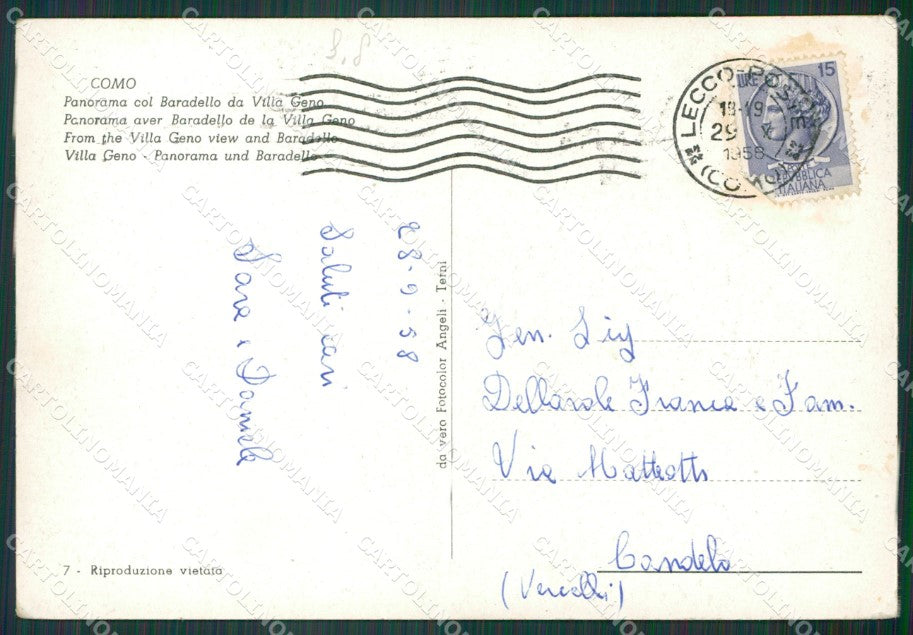 COMO
Panorama col Baradello da Villa Geno
Panorama aver Baradello de la Villa Geno
From the Villa Geno view and Baradello
Villa Geno - Panorama und Baradello
28-9-58
Saluti cari
Sara e Daniele
da vero Fotocolor Angeli - Terni
7 - Riproduzione vietata
LECCO
18-19
29
1958
(CO
LIRE 15
REPUBBLICA
ITALIANA
Gen. Sig
Dellarole Franca e Fam.
Via Matteotti
Candelo
(Vercelli)
CARTOLINOMANIA